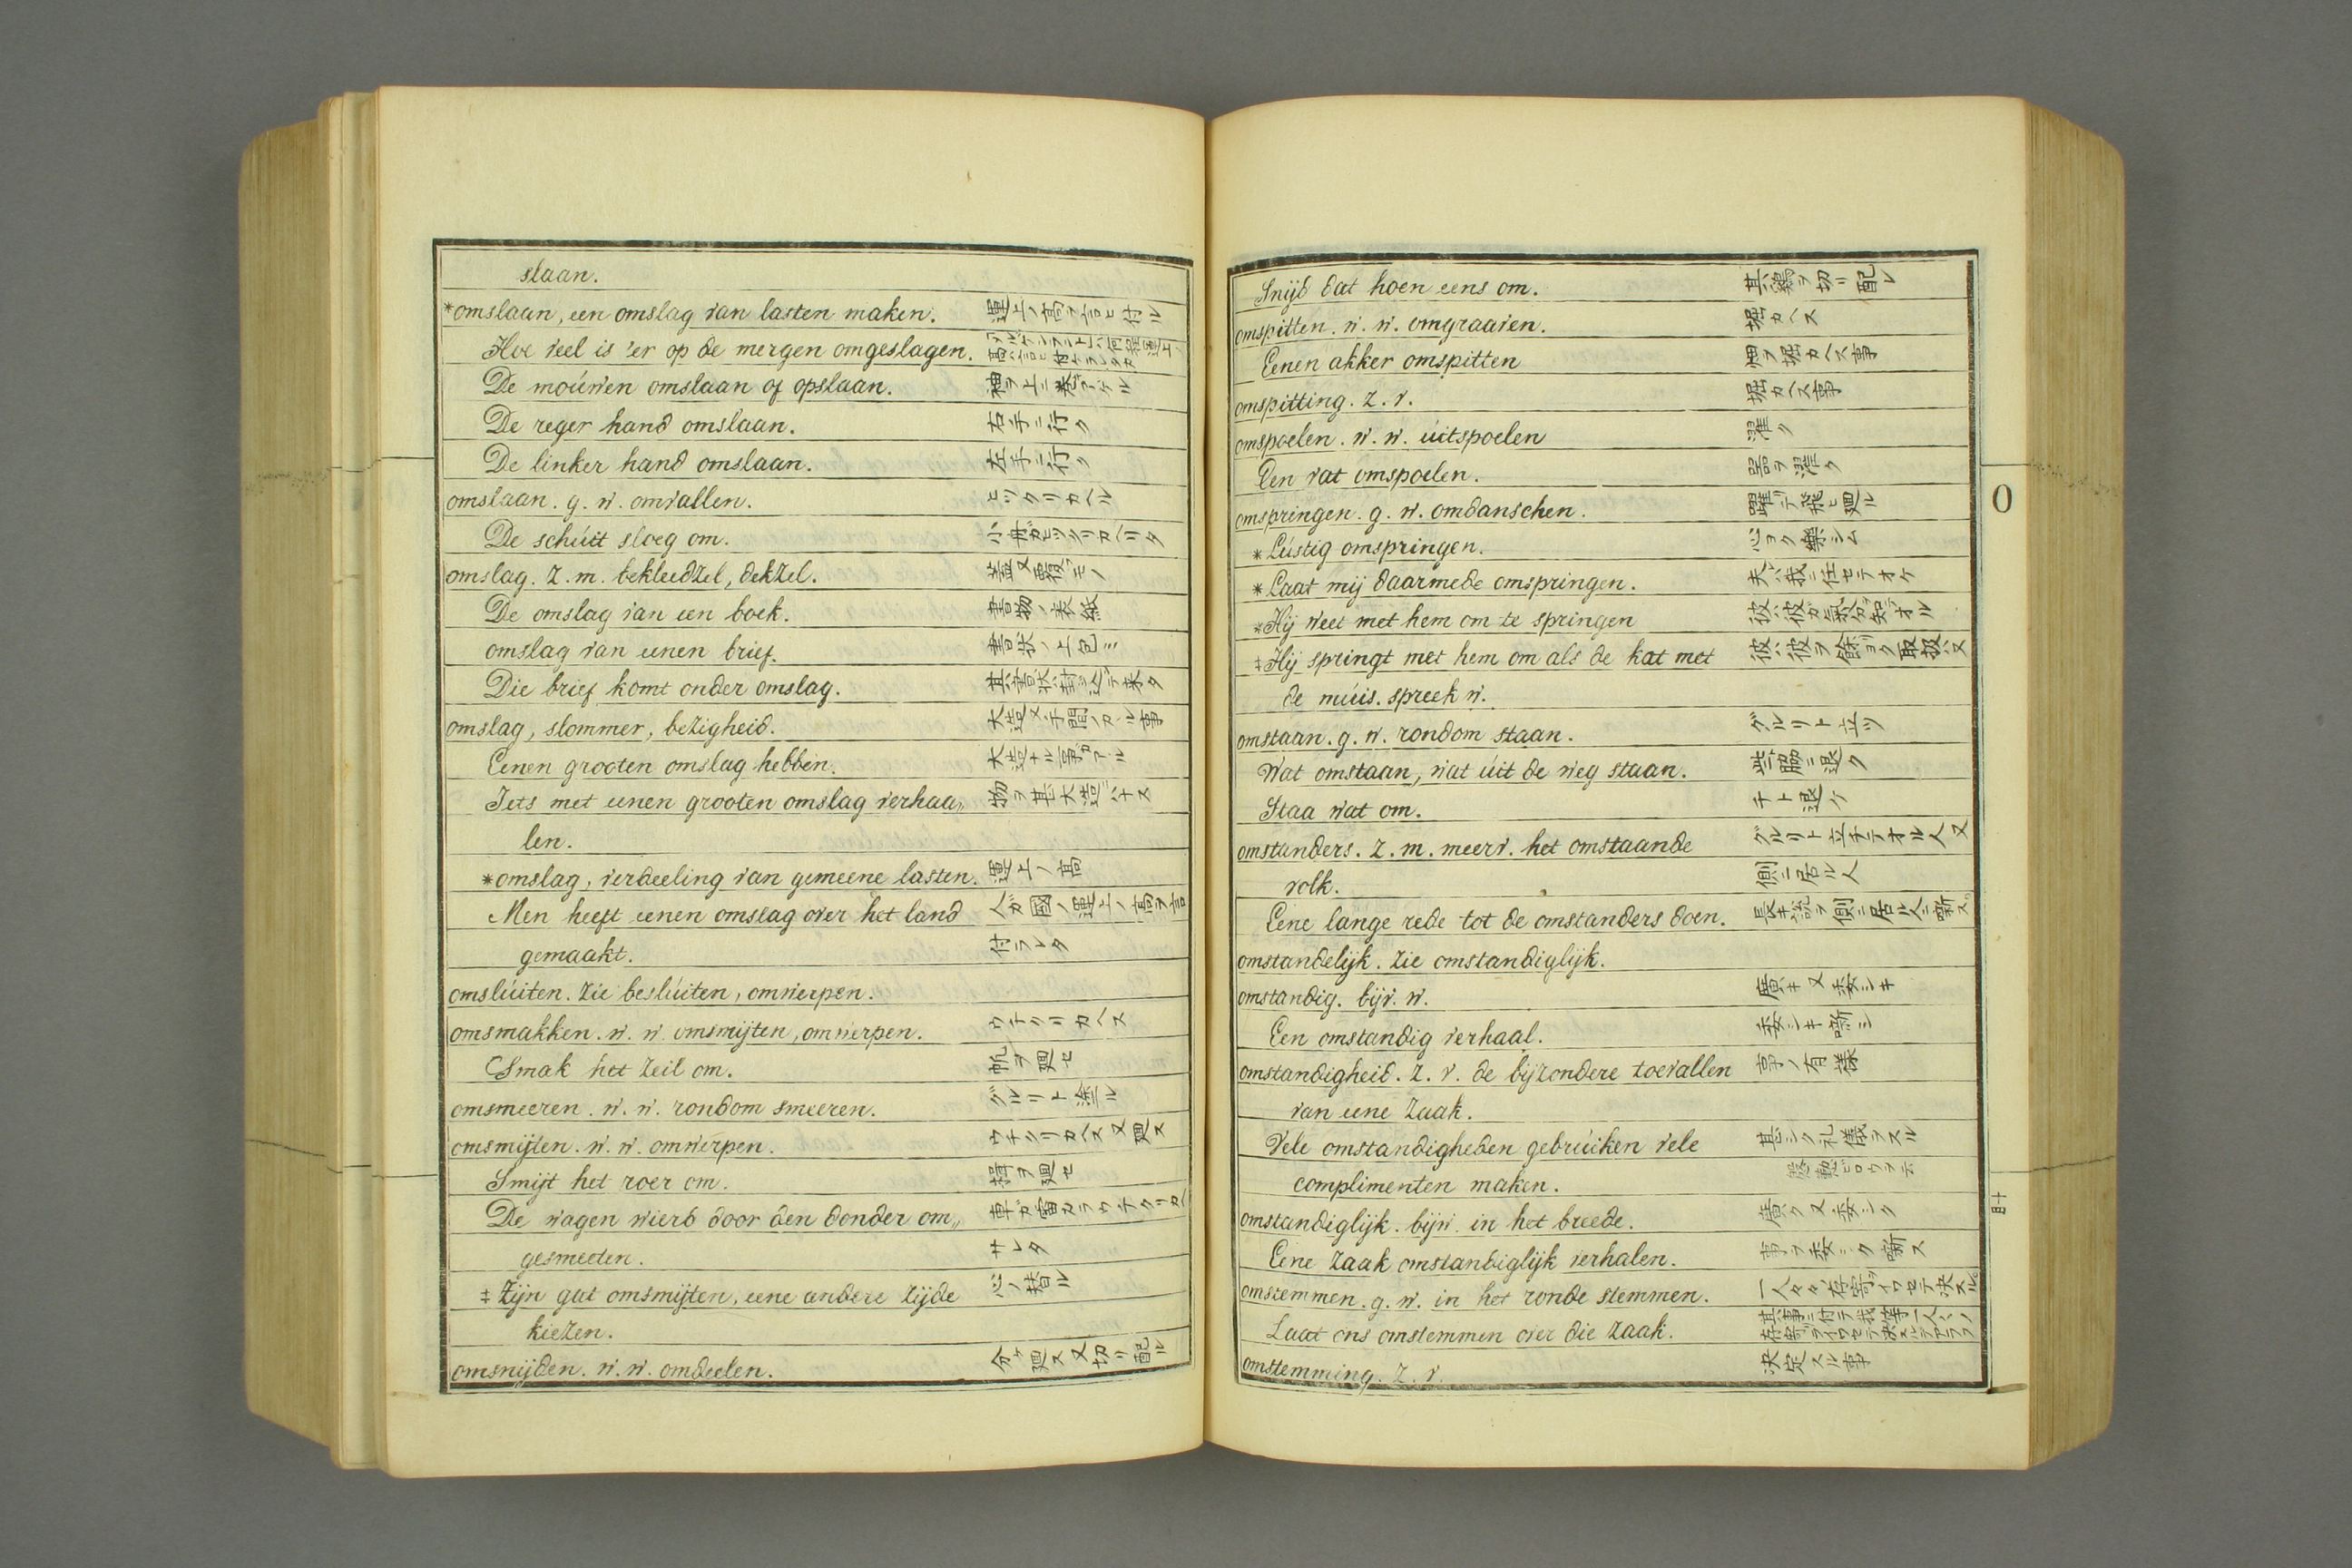 slaan.
*omslaan, een omslag van lasten maken. 運上ノ高ヲ言ヒ付ル
Hoe veel is 'er op de mergen omgeslagen.
De moúwen omslaan of opslaan. 袖ヲ上ニ巻アゲル
De reger hand omslaan. 右手ニ行ク
De linker hand omslaan. 左手ニ行ク
omslaan. g. w. omvallen. ヒツクリカヘル
De schúit sloeg om. 小舟ガヒツクリカヘリタ
omslag. z. m. bekleedzel, dekzel. 盖又覆モノ
De omslag van een boek. 書物ノ表紙
omslag van eenen brief. 書状ノ上包ミ
Die brief komt onder omslag. 其書状ハ封込テ来タ
omslag, slommer, bezigheid. 大造又手間ノアル事
Eenen grooten omslag hebben. 大造ナル事ガアル
Iets met eenen grooten omslag verhaa„ 物ヲ甚大造ニ
len.
*omslag, verdeeling van gemeene lasten. 運上ノ高
Men heeft eenen omslag over het land 人ガ國ノ運上ノ高ヲ言
gemaakt. 付ラレタ
omslúiten. zie beslúiten, omwerpen.
omsmakken. w. w. omsmijten, omwerpen. ウチクリカヘス
Smak het zeil om. 帆ヲ廻セ
omsmeeren. w. w. rondom smeeren. グルリト塗ル
omsmijten. w. w. omwerpen. ウチクリカヘス又廻ス
Smijt het roer om. 揖ヲ廻セ
De wagen wierd door den donder om„ 車ガ雷カラウチクリカヘ
gesmeeten. サレタ
‡ Zijn gat omsmijten, eene andere zijde 心ノ替ル
kiezen.
omsnijden. w. w. omdeelen. 分ケ廻ス又切リ配ル
Snijd dat hoen eens om. 其鶏ヲ切リ配レ
omspitten. w. w. omgraaven. 堀カヘス
Eenen akker omspitten 畑ヲ堀カヘス事
omspitting. z. v. 堀カヘス事
omspoelen. w. w. úitspoelen 濯ク
Een vat omspoelen. 器ヲ濯ク
omspringen. g. w. omdanschen. 躍テ飛ヒ廻ル
*Lústig omspringen. 心ヨク樂シム
*Laat mij daarmede omspringen. 夫ハ我ニ任セテオケ
*Hij weet met hem om te springen 彼ハ彼ガ氣ヲ知テオル
‡Hij springt met hem om als de kat met 彼ハ彼ヲ餘リヨク取扱ハヌ
de múis. spreek w.
omstaan. g. w. rondom staan. グルリト立ツ
Wat omstaan, wat úit de weg staan. 些ト脇ニ退ク
Staa wat om. チト退ケ
omstanders. z. m. meerv. het omstaande グルリト立チテオル人又
volk. 側ニ居ル人
Eene lange rede tot de omstanders doen. 長キ説ヲ側ニ居ル人ニ噺ス
omstandelijk. zie omstandiglijk.
omstandig. bijv. w. 廣キ又委シキ
Een omstandig verhaal. 委シキ噺シ
omstandigheid. z. v. de bijzondere toevallen 事ノ有様
van eene zaak.
Vele omstandigheden gebrúiken vele 甚シク礼儀ヲスル
complimenten maken.
omstandiglijk. bijw. in het breede. 廣ク又委シク
Eene zaak omstandiglijk verhalen. 事ヲ委シク噺ス
omstemmen. g. w. in het ronde stemmen.
Laat ons omstemmen over die zaak.
omstemming. z. v. 決定スル事
O